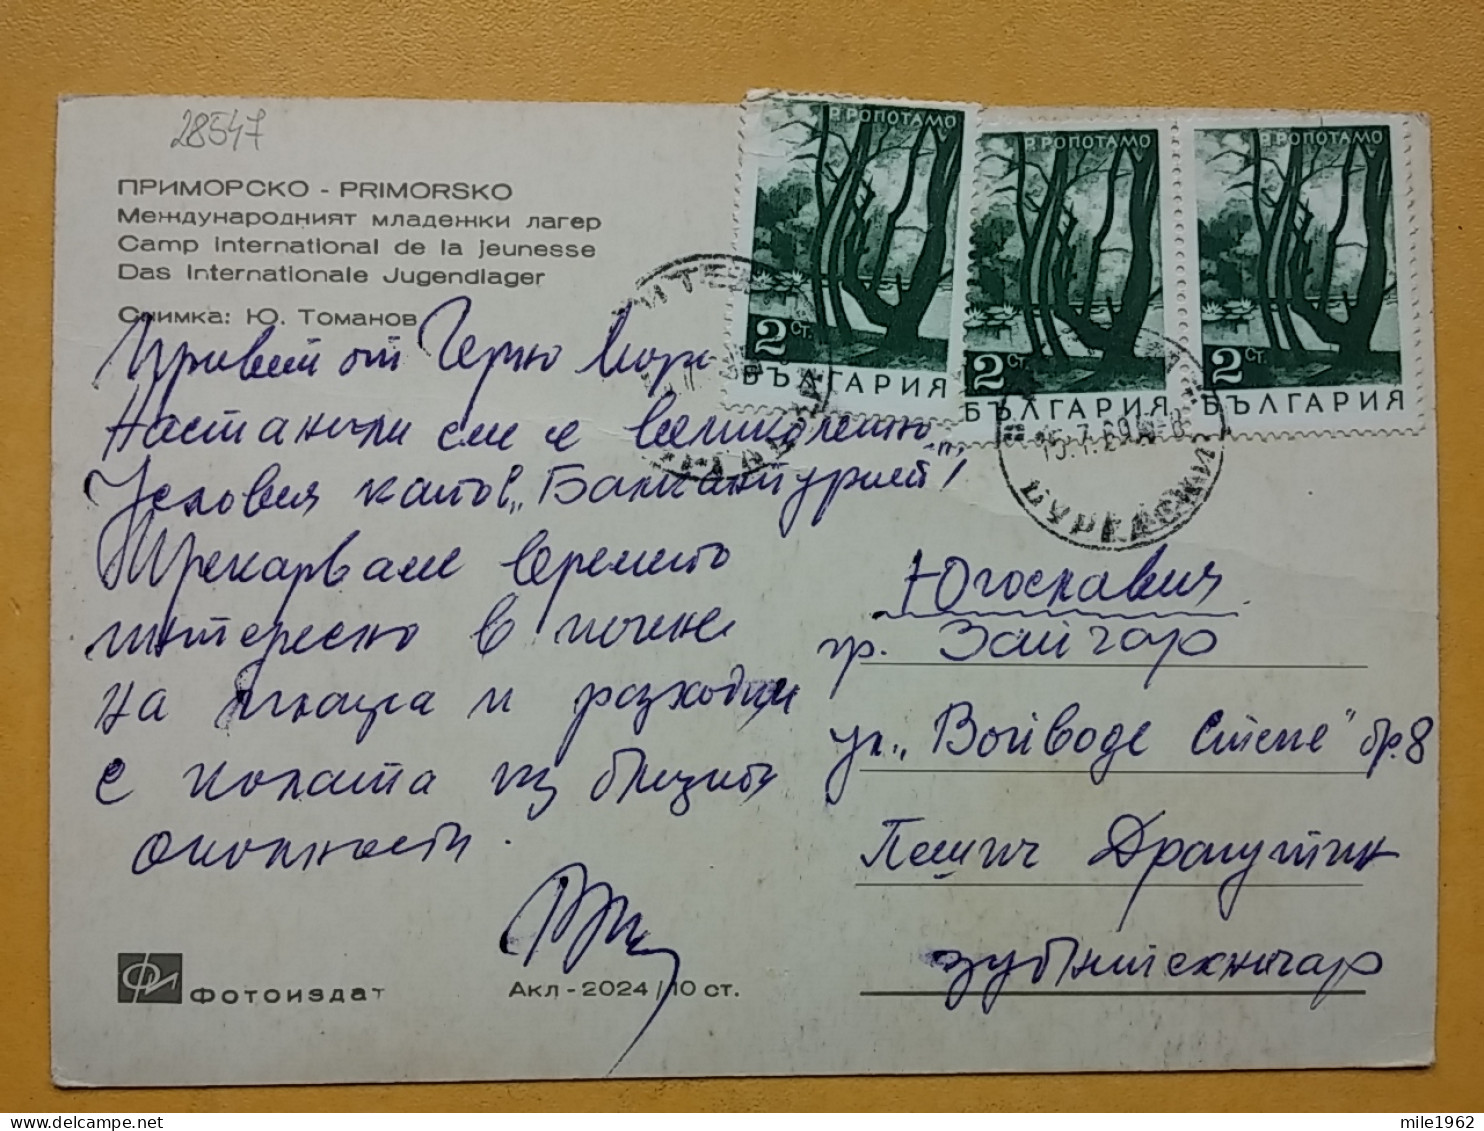 28547
ПРИМОРСКО - PRIMORSKO
Международният младежки лагер
Camp international de la jeunesse
Das Internationale Jugendlager
Снимка: Ю. Томанов
Привет от Черно море
Настанили сме се великолепно
Условия като в „Балкантурист"
Прекарваме времето
интересно в печене
на плажа и разходки
с колата из близките
околности.
Фотоиздат
Акл - 2024 / 10 ст.
Р. РОПОТАМО
2 СТ.
БЪЛГАРИЯ
Р. РОПОТАМО
2 СТ.
БЪЛГАРИЯ
Р. РОПОТАМО
2 СТ.
БЪЛГАРИЯ
15.7.69
БУРГАСКИ
Югославия
гр. Зайчар
ул. „Войводе Степе" бр. 8
Пешич Драгутин
mile1962